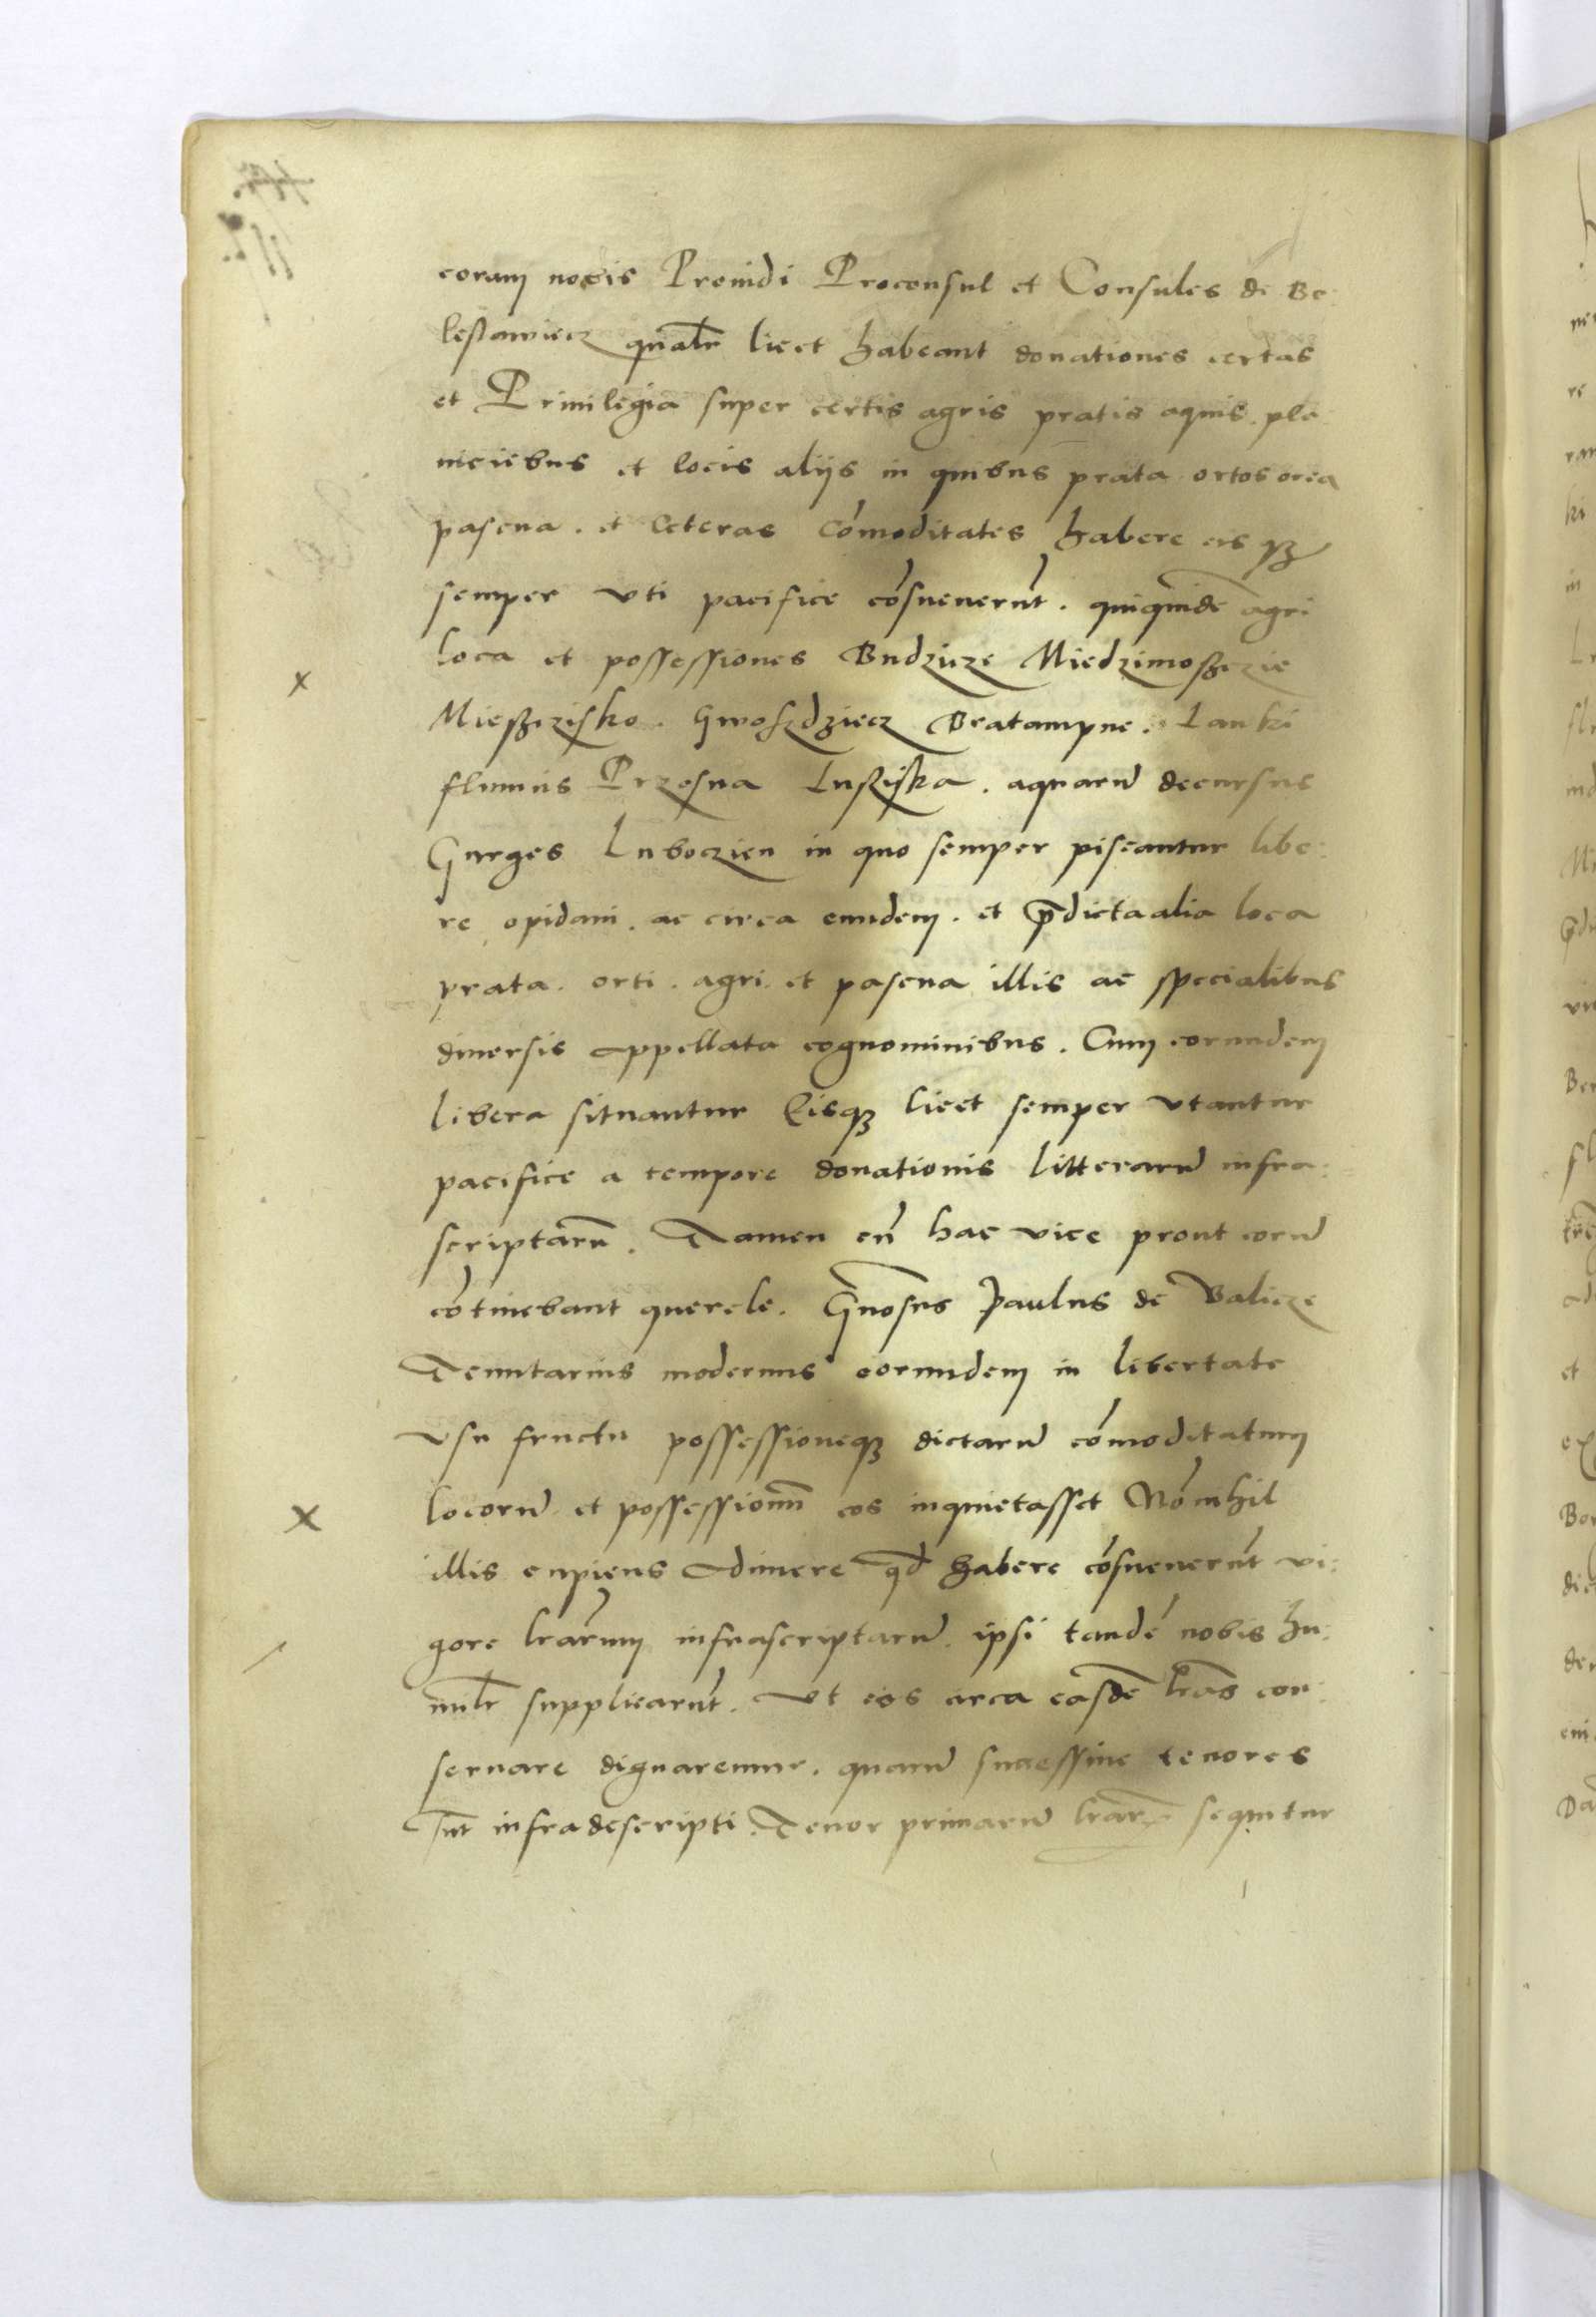 coram nobis Prouidi Proconsul et Consules de Bo:
leslawiecz qualr licet habeant donationes certas
et Priuilegia super certis agris pratis aquis. pla
niciebus et locis aliis in quibus prata ortos orea
pascua. et ceteras cómoditates habere eis qz
semper vti pacifice cósueuerūt. quiquidē agri
loca et possessiones Budzicze Miedzimoszczie
Mieszczisko. Gwoszdziecz Bratampne. Lanki
fluuius Przosna Lusziska. aquarū decursus
Gurges Luboczien in quo semper piscantur libe:
re opidani. ac circa eundem. et p̄dicta alia loca
prata. orti. agri. et pascua illis ac specialibus
diuersis appellata cognominibus. Cum eorundem
libera situantur Eisqz licet semper vtantur
pacifice a tempore donationis litterarū infra:
scriptarū. Tamen cū hac vice prout eorū
cótinebant querele. Gn̄osus Paulus de Balicze
Tenutarius modernus eorundem in libertate
vsu fructu possessioneqz dictarū cómoditatum
locorū et possessionū eos inquietasset Nónihil
illis cupiens adimere qd habere cósueuerūt vi:
gore lrārum infrascriptarū. ipsi tandē nobis hu:
milr supplicarūt. Vt eos circa easdē lrās con:
seruare dignaremur. quarū successiue tenores
sūt infradescripti. Tenor primarū lrār̄ sequitur